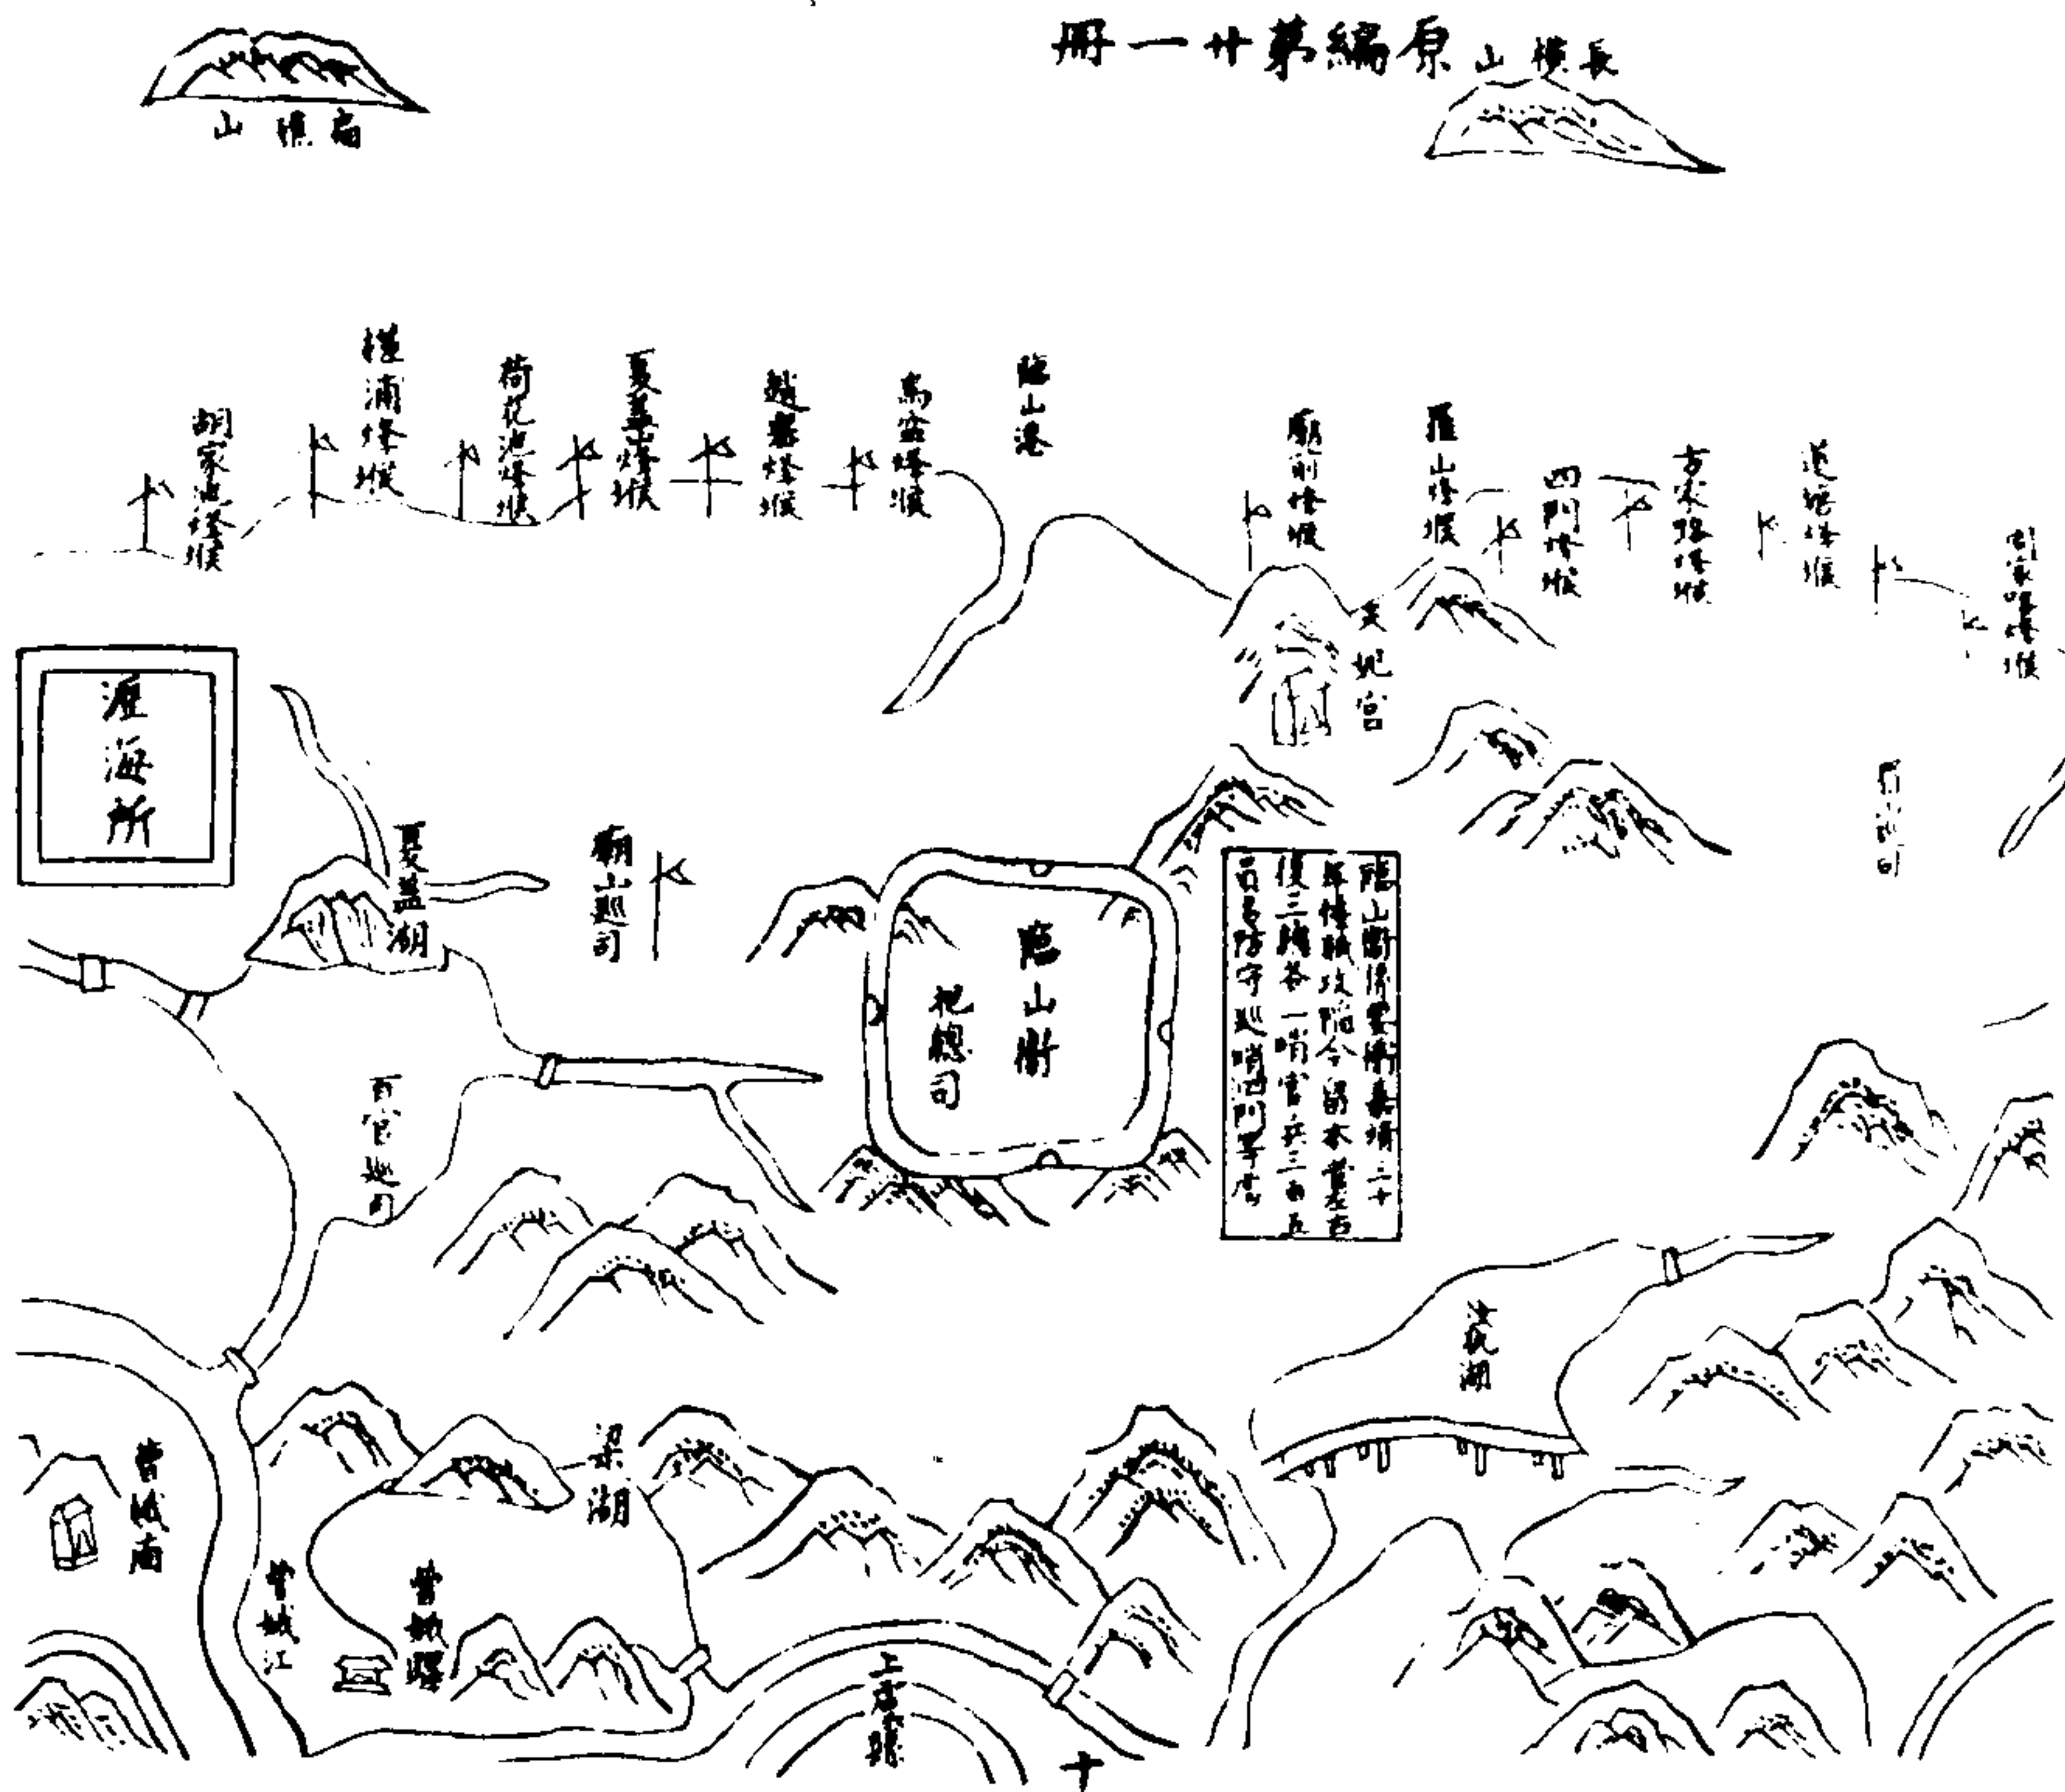 原編第廿一冊
長橫山
扁礁山
臨山港
胡家池烽堠
槎浦烽堠
荷花池烽堠
夏蓋山烽堠
趙寨烽堠
烏盆烽堠
廟前烽堠
羅山烽堠
四門烽堠
方家路烽堠
道塘烽堠
周家路烽堠
天妃宮
瀝海所
夏蓋湖
廟山巡司
臨山衛
把總司
臨山衛係要衝嘉靖三十
年倭賊攻陷今留本營左右
後三總各一哨官兵三百五
百名防守巡哨泗門等處
百官巡司
汝仇湖
梁湖
曹娥廟
曹娥江
曹娥驛
上虞縣
十